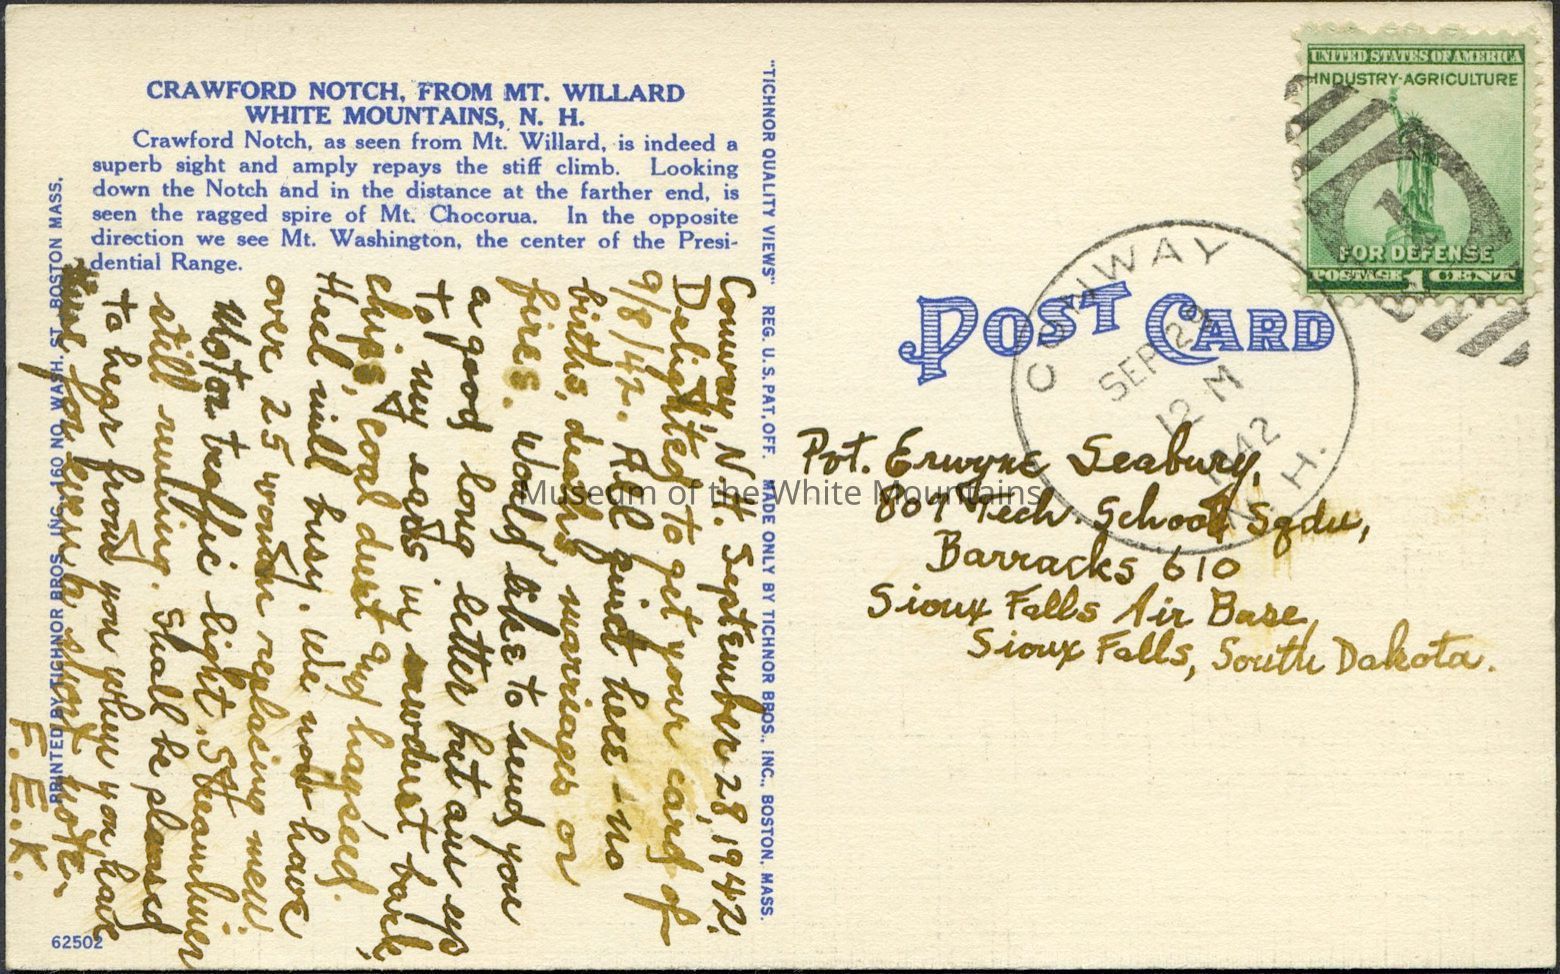 CRAWFORD NOTCH, FROM MT. WILLARD
WHITE MOUNTAINS, N. H.
Crawford Notch, as seen from Mt. Willard, is indeed a
superb sight and amply repays the stiff climb. Looking
down the Notch and in the distance at the farther end, is
seen the ragged spire of Mt. Chocorua. In the opposite
direction we see Mt. Washington, the center of the Presi-
dential Range.
Conway, N.H. September 28, 1942.
Delighted to get your card of
9/8/42. All quiet here - no
births, deaths, marriages or
fires. Would like to send you
a good long letter but am up
to my ears in sawdust bark,
chips, coal dust and hayseed.
Heel mill busy. We now have
over 25 women replacing men.
Motor traffic light. Streamliner
still running. Shall be pleased
to hear from you when you have
time for even a short note.
F. E. K.
62502
PRINTED BY TICHNOR BROS. INC. 160 NO. WASH. ST. BOSTON MASS.
"TICHNOR QUALITY VIEWS" REG. U.S. PAT. OFF. MADE ONLY BY TICHNOR BROS., INC., BOSTON, MASS.
UNITED STATES OF AMERICA
INDUSTRY-AGRICULTURE
FOR DEFENSE
POSTAGE 1 CENT
1
POST CARD
CONWAY
SEP 2
12 M
1942
N. H.
Pvt. Erwyne Seabury,
807 Tech. School Sqdn,
Barracks 610
Sioux Falls Air Base
Sioux Falls, South Dakota.
Museum of the White Mountains